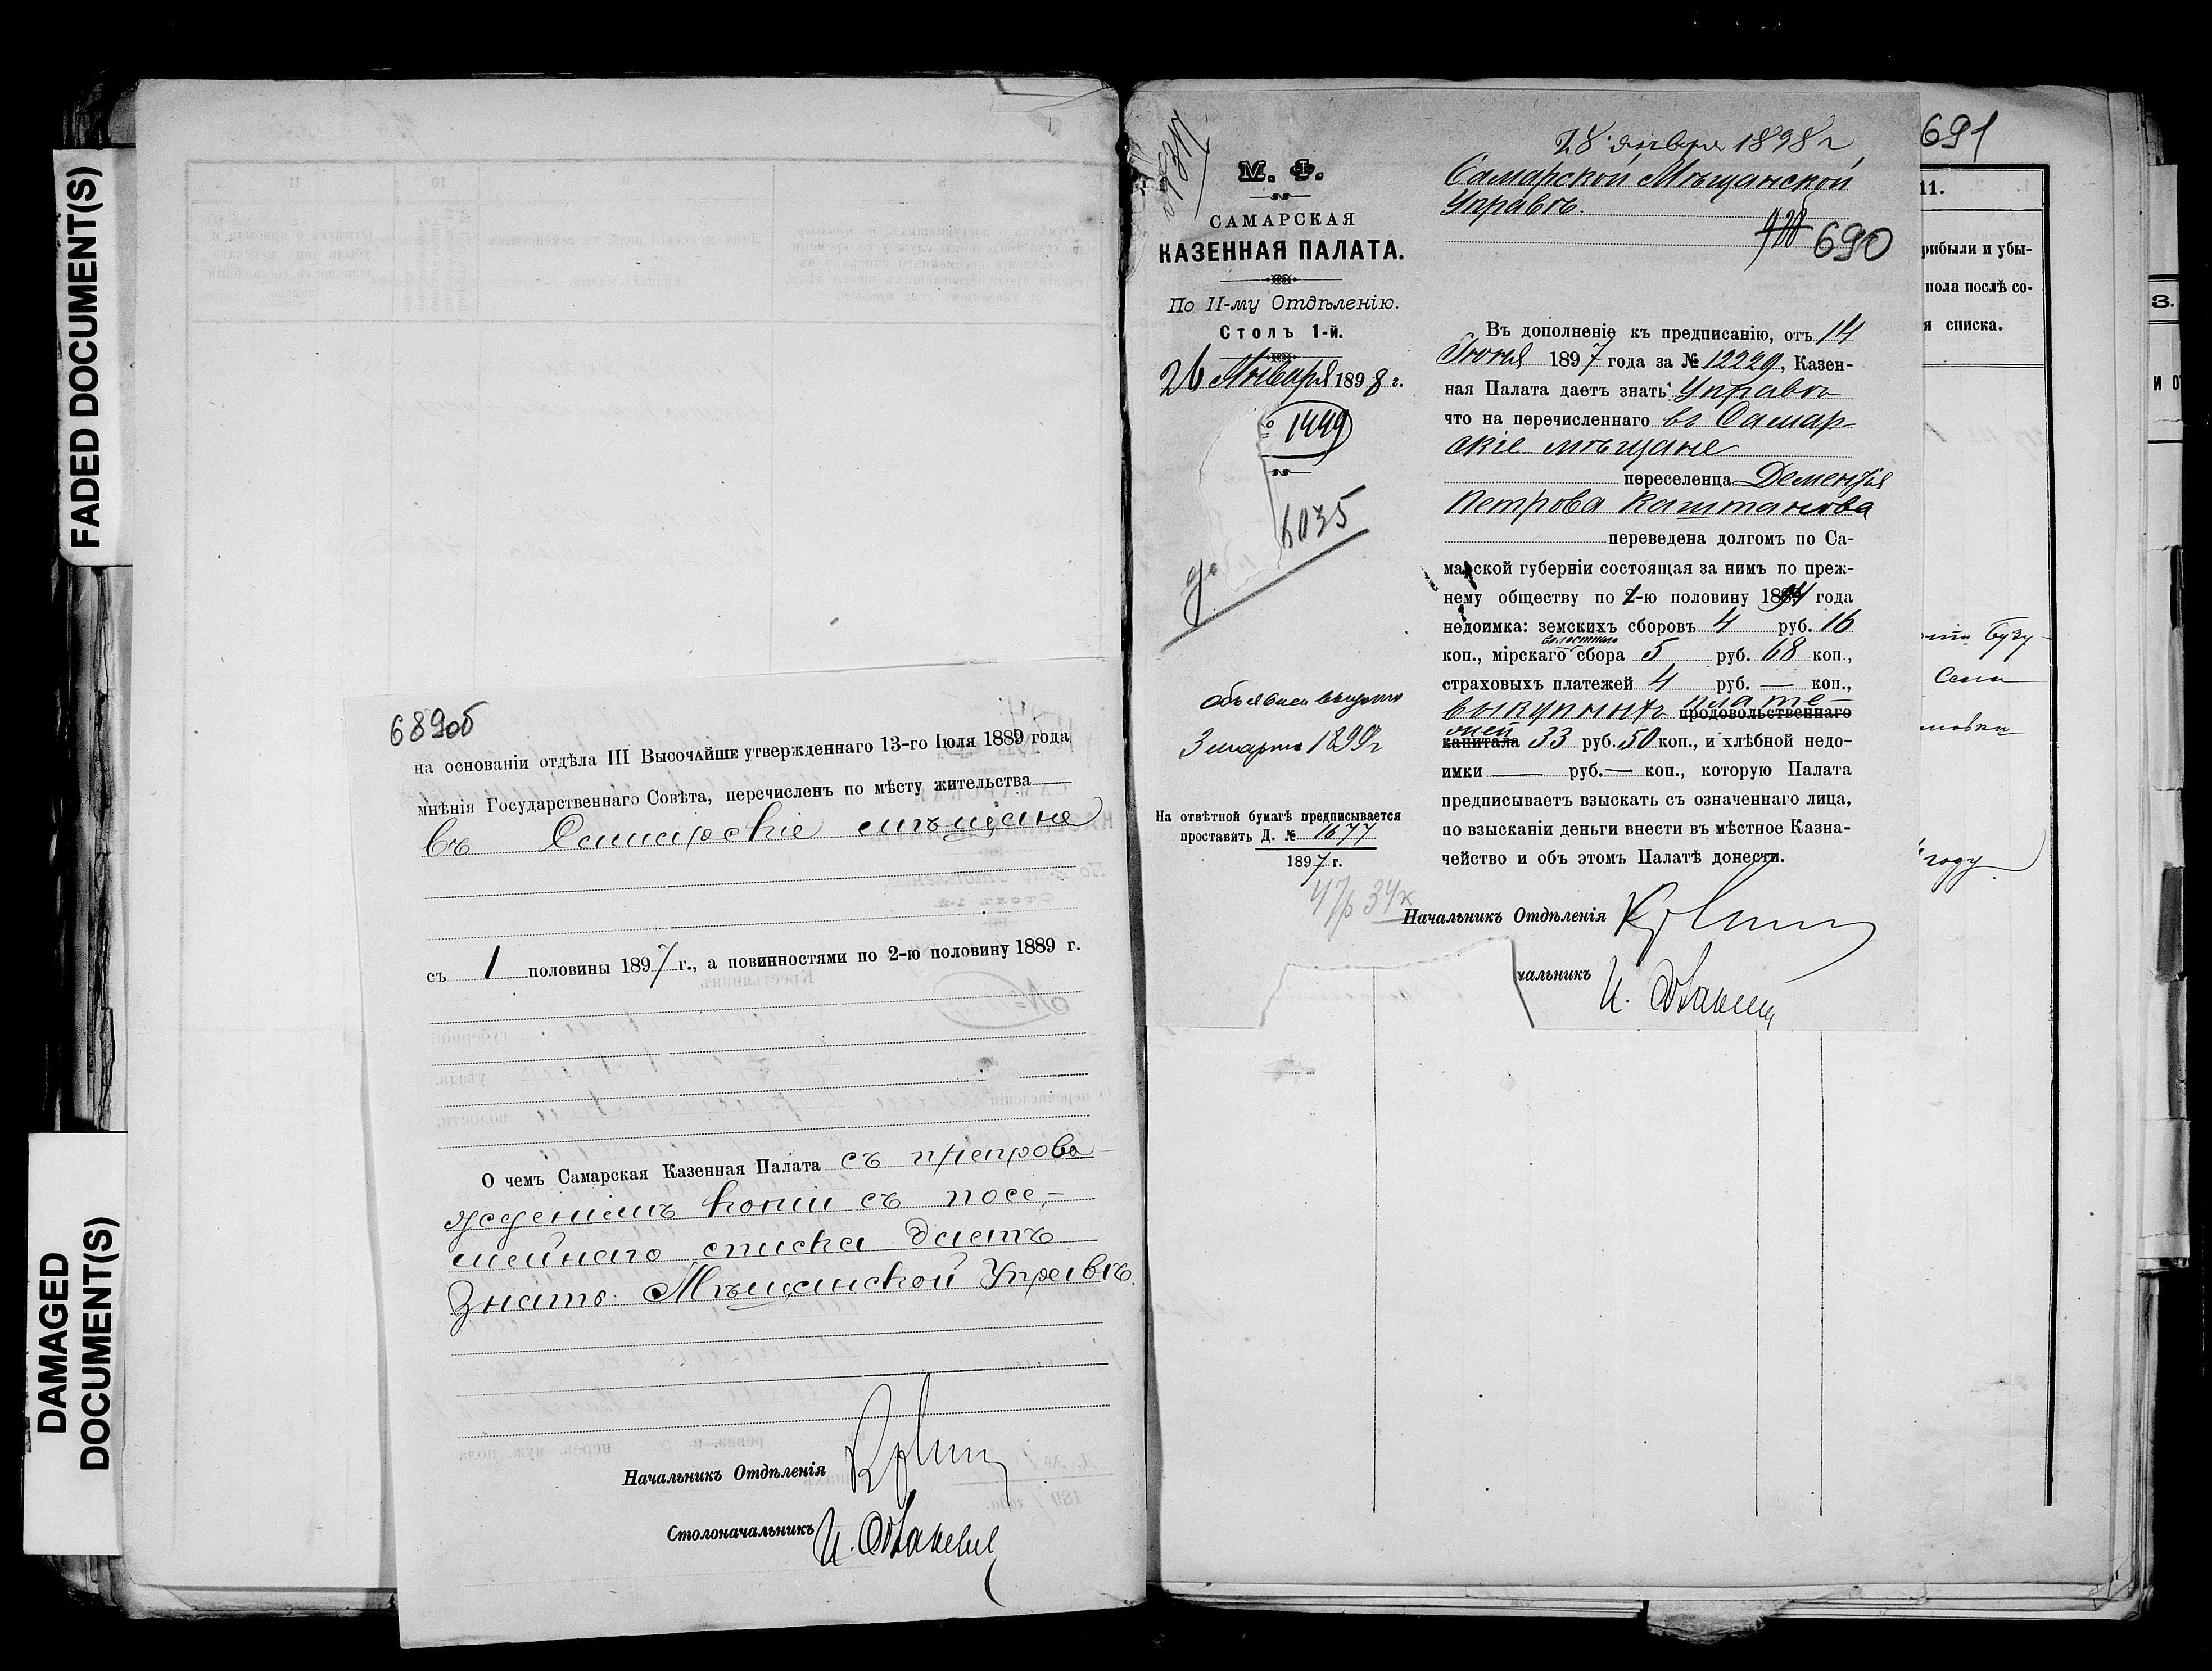 FADED DOCUMENT(S)
DAMAGED
DOCUMENT(S)
689об
на основаніи отдѣла III Высочайше утвержденнаго 13-го Іюля 1889 года
мнѣнія Государственнаго Совѣта, перечисленъ по мѣсту жительства
въ Самарскіе мѣщане
съ 1 половины 1897 г., а повинностями по 2-ю половину 1889 г.
О чемъ Самарская Казенная Палата съ препрово
жденіемъ копіи съ посе-
мейнаго списка даетъ
знать Мѣщанской Управѣ.
Начальникъ Отдѣленія
Столоначальникъ
М. Ф.
САМАРСКАЯ
КАЗЕННАЯ ПАЛАТА.
По II-му Отдѣленію.
Столъ 1-й.
26 Января 1898 г.
№ 1449
6035
3 марта 1899 г
На отвѣтной бумагѣ предписывается
проставить Д. № 1677
1897 г.
47р 34к
28 января 1898 г
Самарской Мѣщанской
Управѣ.
690
Въ дополненіе къ предписанію, отъ 14
Іюня 1897 года за № 12229, Казен-
ная Палата даетъ знать Управѣ
что на перечисленнаго въ Самар-
скіе мѣщане
переселенца Дементія
Петрова Каштанова
переведена долгомъ по Са-
марской губерніи состоящая за нимъ по преж-
нему обществу по 2-ю половину года
недоимка: земскихъ сборовъ 4 руб. 16
волостнаго
коп., мірскаго сбора 5 руб. 68 коп.,
страховыхъ платежей 4 руб. — коп.,
выкупныхъ плате- продовольственнаго
жей капитала 33 руб. 50 коп., и хлѣбной недо-
имки — руб. — коп., которую Палата
предписываетъ взыскать съ означеннаго лица,
по взысканіи деньги внести въ мѣстное Казна-
чейство и объ этомъ Палатѣ донести.
Начальникъ Отдѣленія
чальникъ
691
11.
рибыли и убы-
пола послѣ со-
я списка.
Бузу-
Села
году
3.
и о